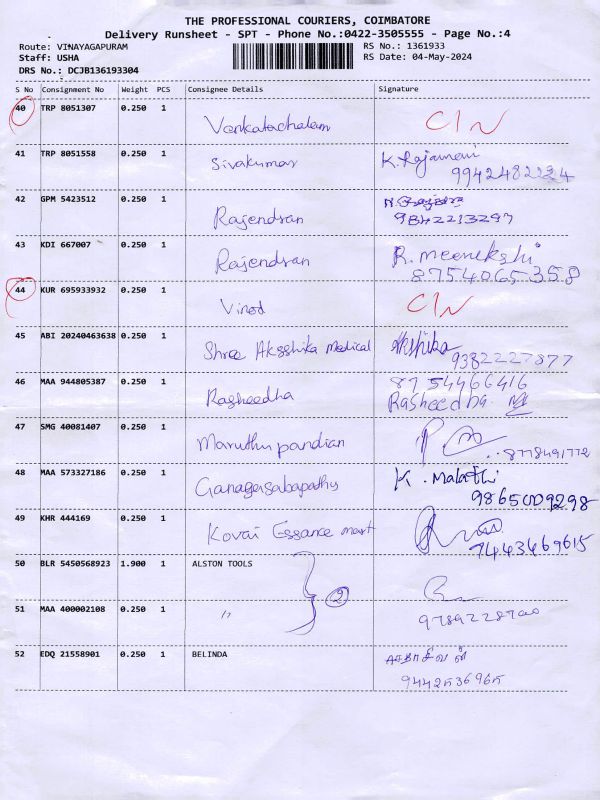 THE PROFESSIONAL COURIERS, COIMBATORE
Delivery Runsheet - SPT - Phone No.:0422-3505555 - Page No.:4
Route: VINAYAGAPURAM RS No.: 1361933
Staff: USHA RS Date: 04-May-2024
DRS No.: DCJB136193304
S No Consignment No Weight PCS Consignee Details Signature
40 TRP 8051307 0.250 1
Venkatachalam C/N
41 TRP 8051558 0.250 1
Sivakumar K. Rajamani
9942482224
42 GPM 5423512 0.250 1
Rajendran 9842213297
43 KDI 667007 0.250 1
Rajendran R. meenekshi
8754065358
44 KUR 695933932 0.250 1
Vinod C/N
45 ABI 20240463638 0.250 1
Shree Aksshika Medical Akshika
9382227877
46 MAA 944805387 0.250 1 8754466416
Rasheedha Rasheedha
47 SMG 40081407 0.250 1
Maruthu pandian 8778491772
48 MAA 573327186 0.250 1
Ganagasabapathy K. Malathi
9865009298
49 KHR 444169 0.250 1
Kovai Essance mart
7443469615
50 BLR 5450568923 1.900 1 ALSTON TOOLS
2
51 MAA 400002108 0.250 1
〃 9789228700
52 EDQ 21558901 0.250 1 BELINDA சதாசிவன்
9442536965